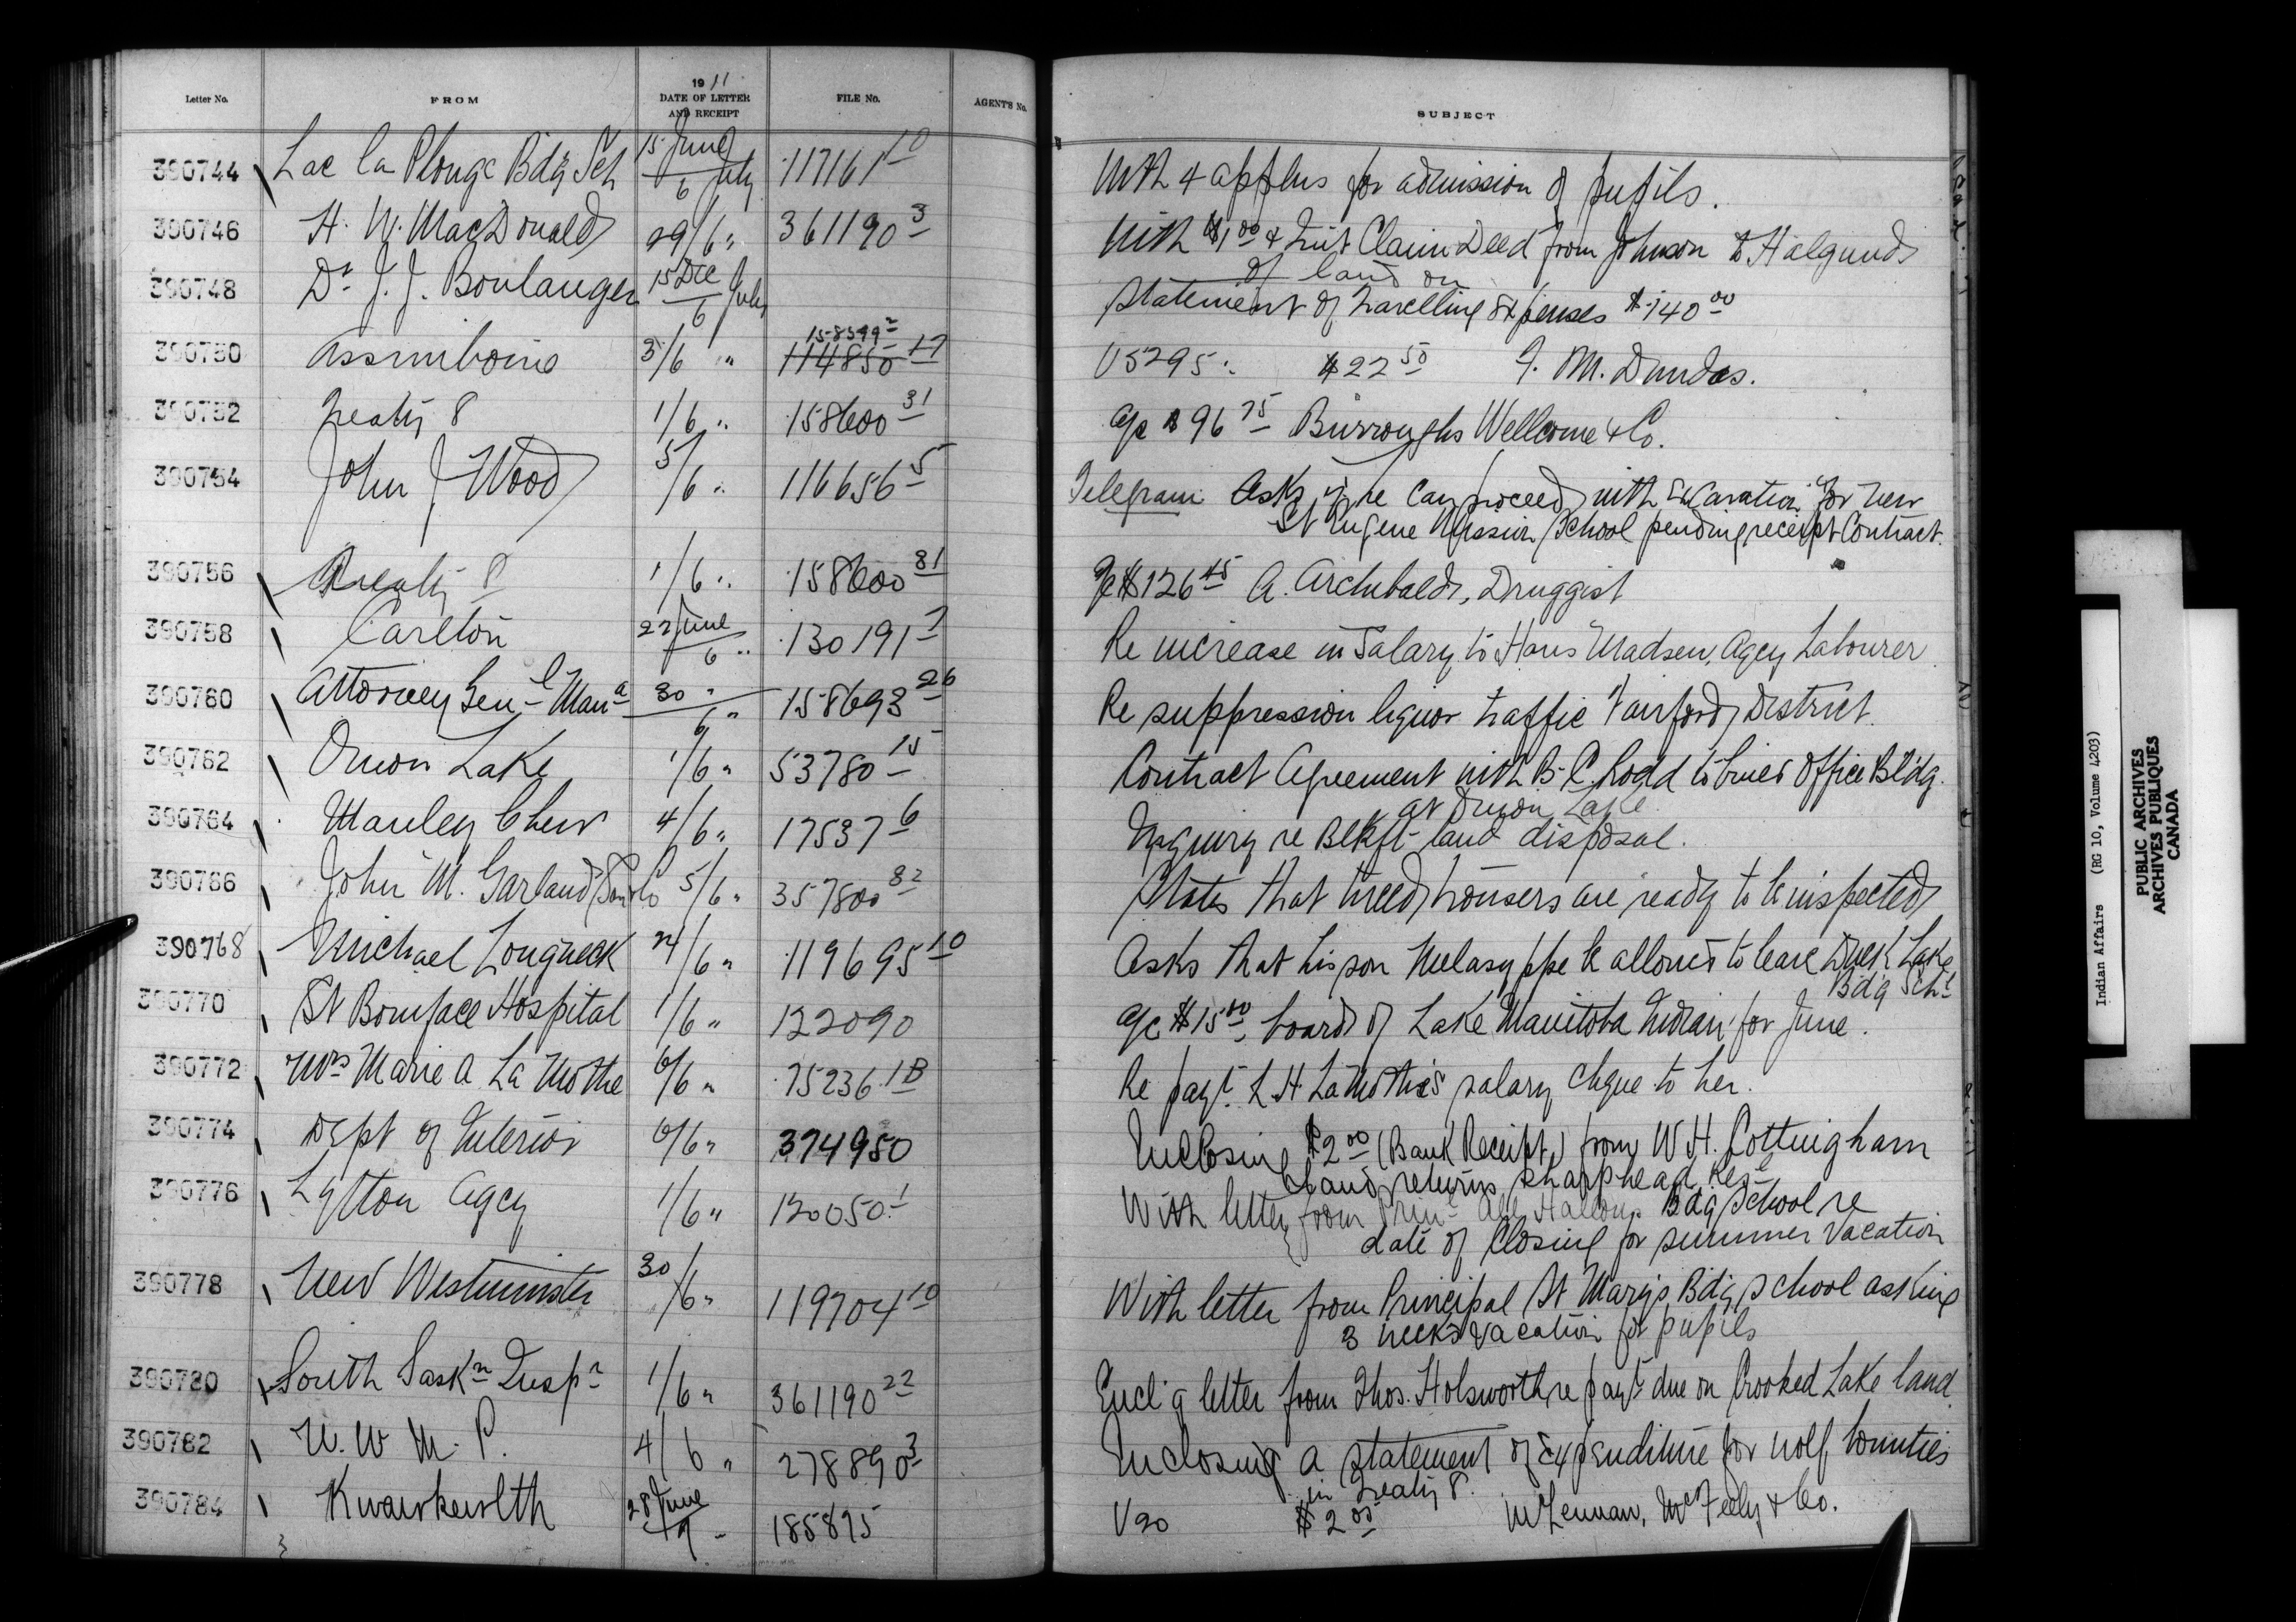 Letter No. FROM 1911 DATE OF LETTER AND RECEIPT FILE No. AGENT'S No. SUBJECT
390744 Lac la Plonge Bdg Sch 15 June / 6 July 117161 10 With 4 applns for admission of pupils.
390746 H. W. MacDonald 29/6 " 361190 3 With $1 00 & Quit Claim Deed from Johnson to Halgunds
of land on
390748 Dr J. J. Boulanger 15 Dec / 6 July Statement of Travelling Expenses $140 00
158599 2
390750 Assiniboine 3/6 " 114850 17 V5295. $22 50 J. M. Dundas.
390752 Treaty 8 1/6 " 158600 31 a/c $96 75 Burroughs Wellcome & Co.
390754 John J Wood 5/6 " 116656 5 Telegram Asks if he can proceed with Excavation for new
St Eugene Mission School pending receipt Contract.
390756 Treaty 8 1/6 " 158600 31 a/c $126 45 A. Archibald, Druggist
390758 Carlton 22 June / 6 " 130191 7 Re increase in Salary to Hans Madsen, Agcy Labourer
390760 Attorney Genl Mana 30 " / 6 " 158693 26 Re suppression liquor traffic Fairford District.
390762 Onion Lake 1/6 " 53780 15 Contract Agreement with B. C. to build Office Bldg.
at Onion Lake.
390764 Manley Chew 4/6 " 17537 6 Inquiry re Blkft land disposal.
390766 John M. Garland Son & Co 5/6 " 357800 82 States that tweed trousers are ready to be inspected
390768 Michael Longneck 24/6 " 119695 10 Asks that his son be allowed to leave Duck Lake
Bdg Schl
390770 St Boniface Hospital 1/6 " 122090 a/c $15 00, board of Lake Manitoba Indian for June.
390772 Mrs Marie A La Mothe 6/6 " 75236.1B Re payt. L. H LaMothe's salary cheque to her.
390774 Dept of Interior 6/6 " 374950 Inclosing $2 00 (Bank Receipt,) from W. H. Cottingham
land returns Sharphead Rese
390776 Lytton Agcy 1/6 " 120050.1 With letter from Prinl All Hallows Bdg School re
date of closing for summer vacation
390778 New Westminster 30/6 " 119704 10 With letter from Principal St Mary's Bdg School asking
3 weeks vacation for pupils
390780 South Saskn Inspr 1/6 " 361190 22 Encl'g letter from Thos. Holsworth re payt due on Crooked Lake land.
390782 R. N. W. M. P. 4/6 " 278890 3 Inclosing a statement of expenditure for wolf bounties
in Treaty 8.
390784 Kwawkewlth 28 June / 9 " 185875 V20 $2 05 McLennan, McFeely & Co.
Indian Affairs (RG 10, Volume 4203)
PUBLIC ARCHIVES
ARCHIVES PUBLIQUES
CANADA